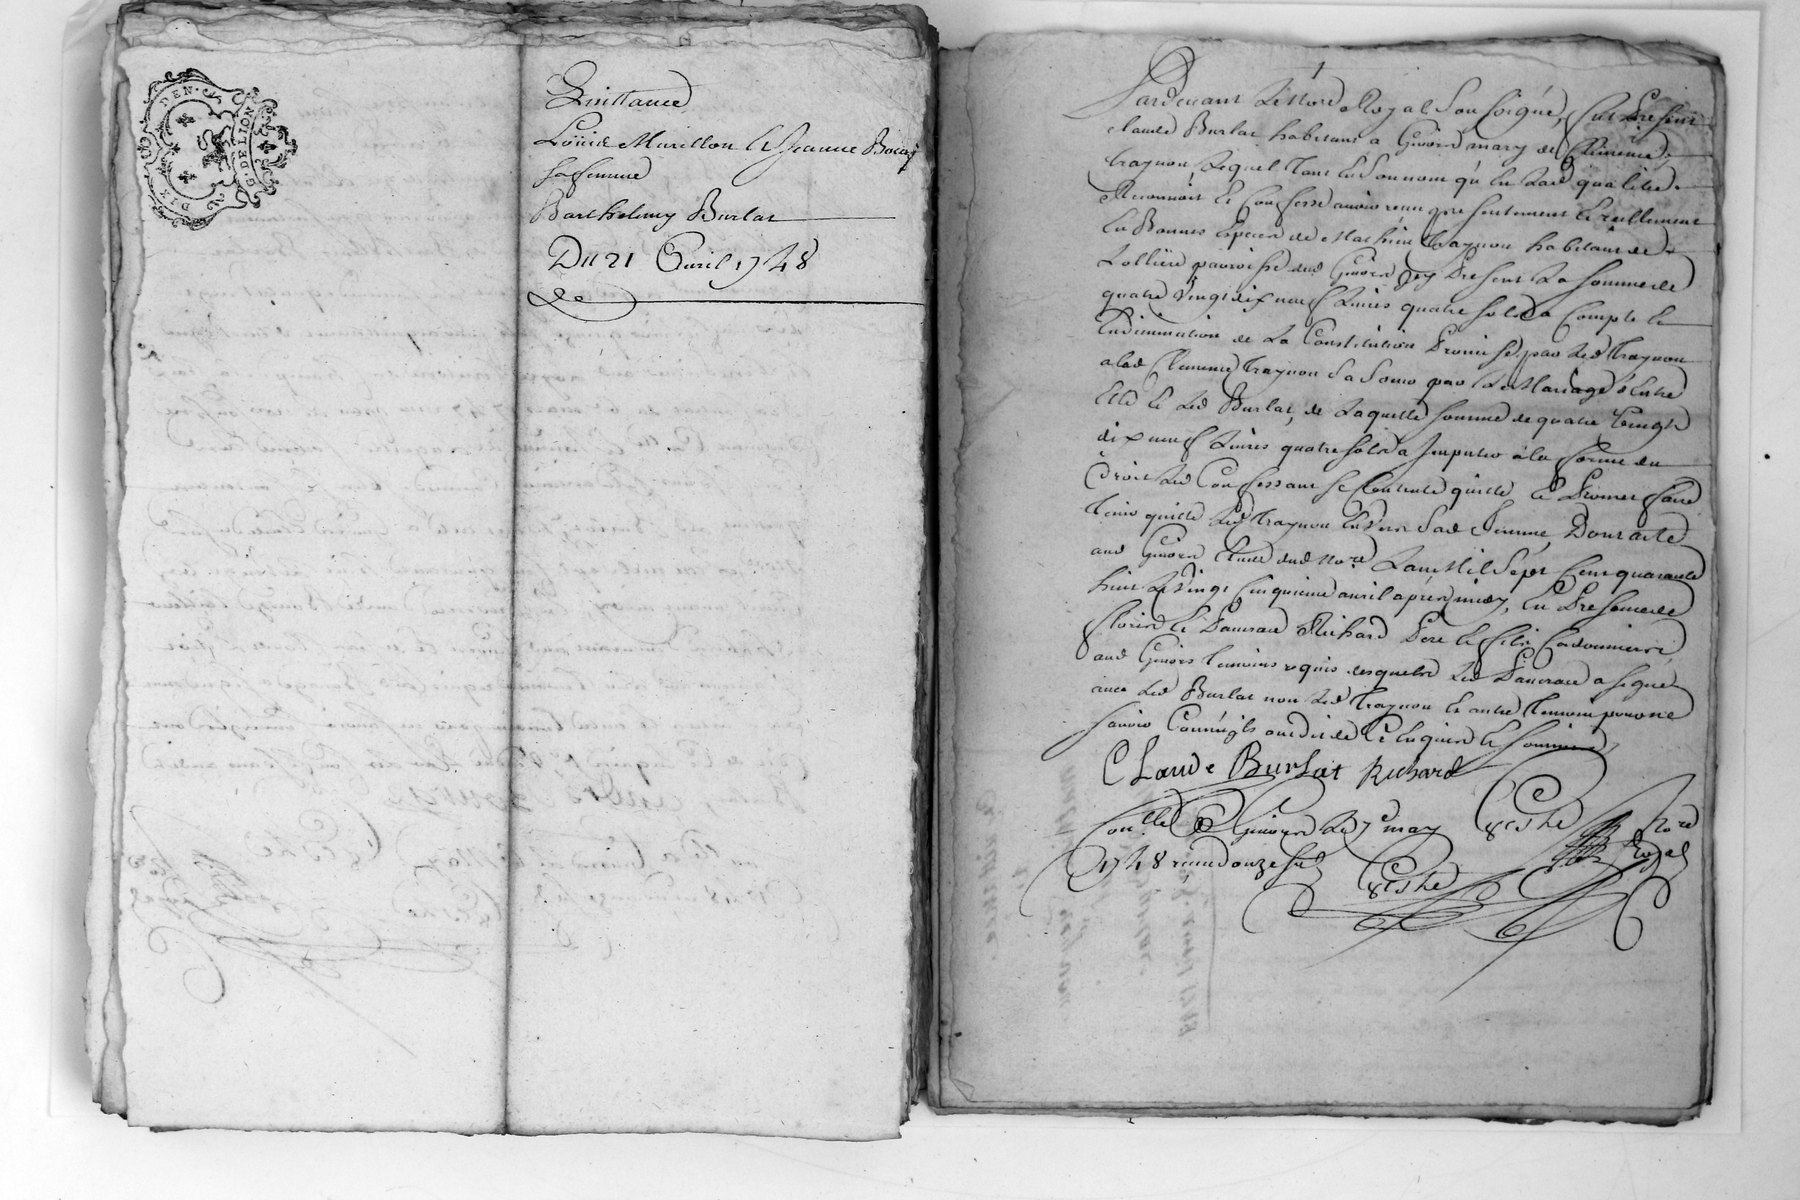 DIX DEN.
G. DE LION
Quittance
Loüis Murillon et Jeanne
sa femme
Barthelemy Burlat
Du 21 Avril 1748
De
Pardevant Le Nore Royal Sousigné, fut Present
Claude Burlat habitant a Givors mary de Clemence
traynon, Lequel tant en Son nom qu'en Lad qualité
Reconnoit et Confesse avoir reçu presentement et reellement
En Bonnes Especes de Mathieu traynon habitant de
paroisse dud Givors Icy Present La Somme de
quatre Vingt dix neuf Livres quatre sols a Compte et
En diminution de La Constitution Promise par Led traynon
a lad Clemence traynon Sa Soeur par Le Mariage d'Entre
Elle et Led Burlat, de Laquelle somme de quatre Vingt
dix neuf Livres quatre sols a Imputer a la forme du
Droit Led Confessant se Contente quitte et Promet faire
tenir quitte Led traynon Envers Sad Femme, Dont acte
aud Givors Etude dud Nore L'an Mil Sept Cent quarante
huit Le Vingt Cinquieme avril après midy, En Presence de
et Pancrace Richard Pere et fils Cordonniers
aud Givors temoins requis desquels Led Pancrace a signé
avec Led Burlat non Led traynon et autre temoin pour ne
Savoir Comm'ils ont dit de Ce Enquis et Sommés
CLaude BurLat Richard
Conllé a Givors Le 7e may
1748 reçu douze sols
Nore
Royal